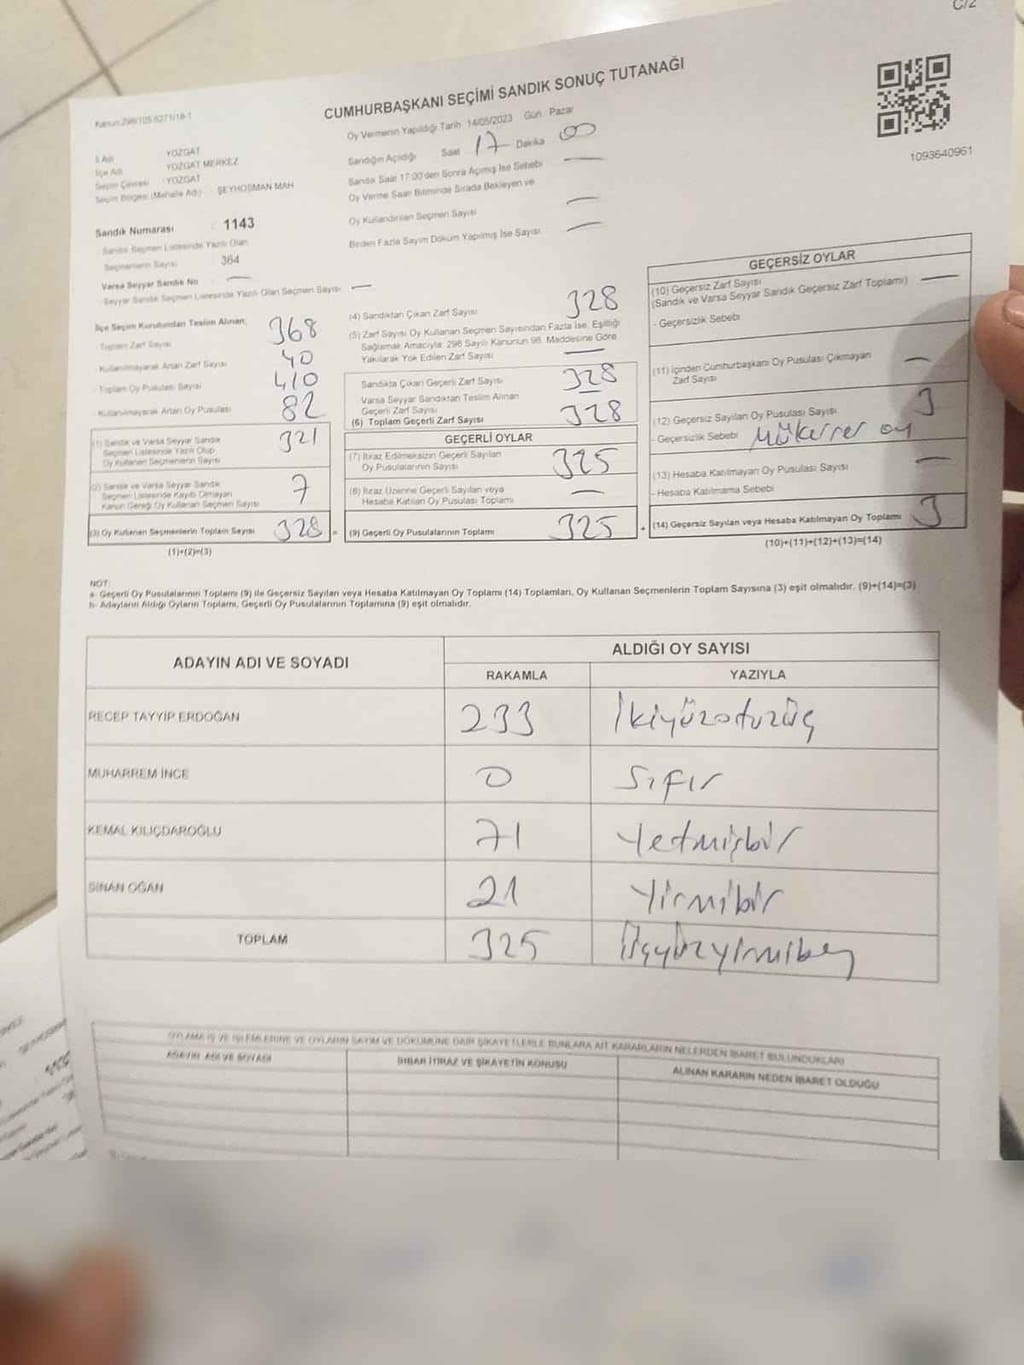 C/2
CUMHURBAŞKANI SEÇİMİ SANDIK SONUÇ TUTANAĞI
1093640961
İl Adı YOZGAT
İlçe Adı YOZGAT MERKEZ
Seçim Çevresi : YOZGAT
Seçim Bölgesi (Mahalle Adı) : ŞEYHOSMAN MAH
Sandık Numarası : 1143
Sandık Seçmen Listesinde Yazılı Olan
Seçmenlerin Sayısı 364
Varsa Seyyar Sandık No —
Seyyar Sandık Seçmen Listesinde Yazılı Olan Seçmen Sayısı —
Oy Vermenin Yapıldığı Tarih 14/05/2023 Gün Pazar
Sandığın Açıldığı Saat 17 Dakika 00
Sandık Saat 17:00'den Sonra Açılmış İse Sebebi —
Oy Verme Saati Bitiminde Sırada Bekleyen ve
Oy Kullandırılan Seçmen Sayısı —
Birden Fazla Sayım Döküm Yapılmış İse Sayısı —
İlçe Seçim Kurulundan Teslim Alınan;
Toplam Zarf Sayısı 368
Kullanılmayarak Artan Zarf Sayısı 40
- Toplam Oy Pusulası Sayısı 410
- Kullanılmayarak Artan Oy Pusulası 82
(1) Sandık ve Varsa Seyyar Sandık
Seçmen Listesinde Yazılı Olup
Oy Kullanan Seçmenlerin Sayısı 321
(2) Sandık ve Varsa Seyyar Sandık
Seçmen Listesinde Kayıtlı Olmayan
Kanun Gereği Oy Kullanan Seçmen Sayısı 7
(3) Oy Kullanan Seçmenlerin Toplam Sayısı 328
(1)+(2)=(3)
(4) Sandıktan Çıkan Zarf Sayısı 328
(5) Zarf Sayısı Oy Kullanan Seçmen Sayısından Fazla İse, Eşitliği
Sağlamak Amacıyla; 298 Sayılı Kanunun 98. Maddesine Göre
Yakılarak Yok Edilen Zarf Sayısı —
Sandıkta Çıkan Geçerli Zarf Sayısı 328
Varsa Seyyar Sandıktan Teslim Alınan
Geçerli Zarf Sayısı —
(6) Toplam Geçerli Zarf Sayısı 328
GEÇERLİ OYLAR
(7) İtiraz Edilmeksizin Geçerli Sayılan
Oy Pusulalarının Sayısı 325
(8) İtiraz Üzerine Geçerli Sayılan veya
Hesaba Katılan Oy Pusulası Toplamı —
(9) Geçerli Oy Pusulalarının Toplamı 325
GEÇERSİZ OYLAR
(10) Geçersiz Zarf Sayısı
(Sandık ve Varsa Seyyar Sandık Geçersiz Zarf Toplamı) —
- Geçersizlik Sebebi
(11) İçinden Cumhurbaşkanı Oy Pusulası Çıkmayan
Zarf Sayısı —
(12) Geçersiz Sayılan Oy Pusulası Sayısı 3
- Geçersizlik Sebebi Mükerrer oy
(13) Hesaba Katılmayan Oy Pusulası Sayısı —
- Hesaba Katılmama Sebebi
(14) Geçersiz Sayılan veya Hesaba Katılmayan Oy Toplamı 3
(10)+(11)+(12)+(13)=(14)
NOT:
a- Geçerli Oy Pusulalarının Toplamı (9) ile Geçersiz Sayılan veya Hesaba Katılmayan Oy Toplamı (14) Toplamları, Oy Kullanan Seçmenlerin Toplam Sayısına (3) eşit olmalıdır. (9)+(14)=(3)
b- Adayların Aldığı Oyların Toplamı, Geçerli Oy Pusulalarının Toplamına (9) eşit olmalıdır.
ADAYIN ADI VE SOYADI
ALDIĞI OY SAYISI
RAKAMLA YAZIYLA
RECEP TAYYİP ERDOĞAN 233 İkiyüzotuzüç
MUHARREM İNCE 0 Sıfır
KEMAL KILIÇDAROĞLU 71 Yetmişbir
SİNAN OĞAN 21 Yirmibir
TOPLAM 325 Üçyüzyirmibeş
OYLAMA İŞ VE İŞLEMLERİNE VE OYLARIN SAYIM VE DÖKÜMÜNE DAİR ŞİKAYETLERLE BUNLARA AİT KARARLARIN NELERDEN İBARET BULUNDUKLARI
ADAYIN ADI VE SOYADI İHBAR İTİRAZ VE ŞİKAYETİN KONUSU ALINAN KARARIN NEDEN İBARET OLDUĞU